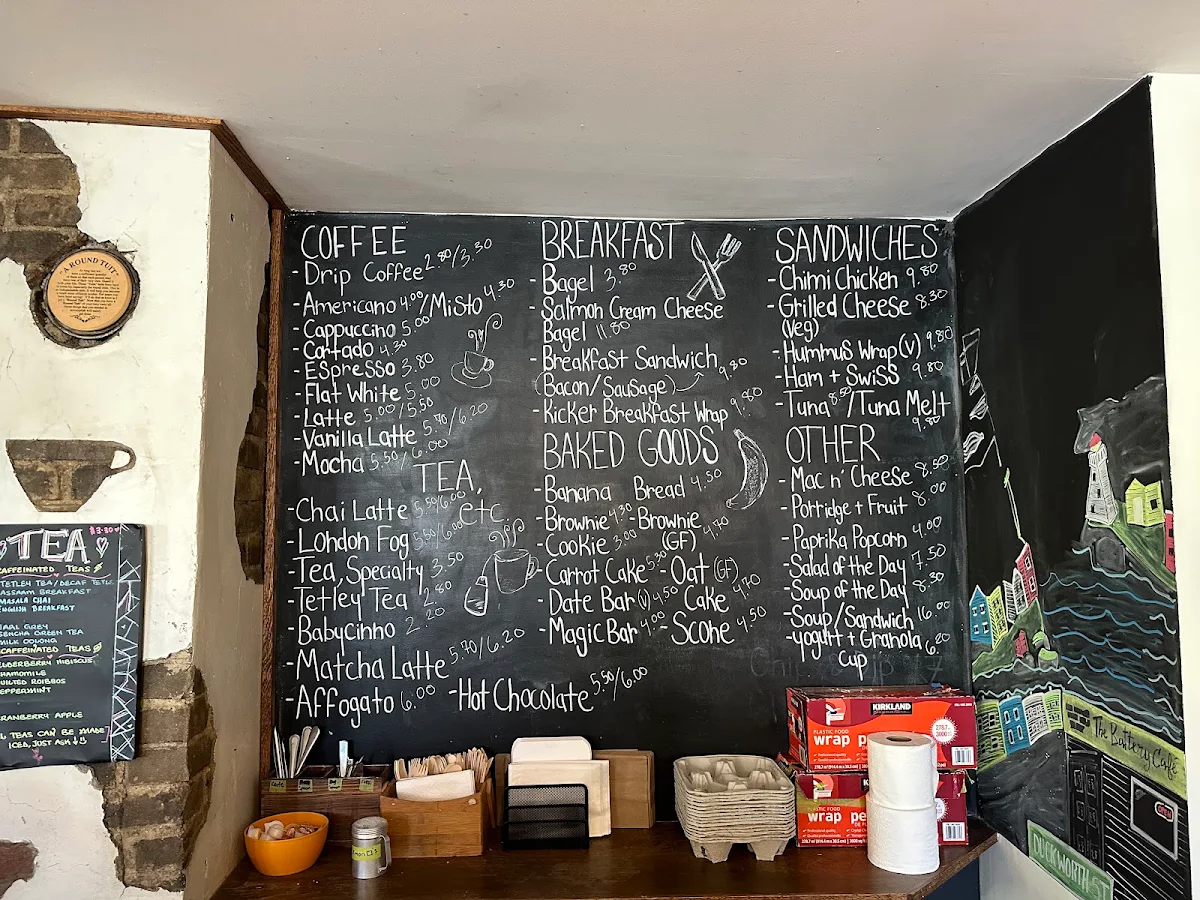 A ROUND TUIT
TEA
$3.80
CAFFEINATED TEAS
TETLEY TEA/DECAF TETL
ASSAAM BREAKFAST
MASALA CHAI
ENGLISH BREAKFAST
EARL GREY
SENCHA GREEN TEA
MILK OOLONG
CAFFEINATED TEAS
ELDERBERRY HIBISCUS
CHAMOMILE
ROIBBOS
PEPPERMINT
CRANBERRY APPLE
TEAS CAN BE MADE
ICED, JUST ASK
COFFEE
- Drip Coffee 2.80/3.30
- Americano 4.00/Misto 4.30
- Cappuccino 5.00
- Cortado 4.30
- Espresso 3.80
- Flat White 5.00
- Latte 5.00/5.50
- Vanilla Latte 5.70/6.20
- Mocha 5.50/6.00
TEA, etc
- Chai Latte 5.50/6.00
- London Fog 5.50/6.00
- Tea, Specialty 3.50
- Tetley Tea 2.80
- Babycinno 2.20
- Matcha Latte 5.70/6.20
- Affogato 6.00 - Hot Chocolate 5.50/6.00
BREAKFAST
- Bagel 3.80
- Salmon Cream Cheese
Bagel 11.80
- Breakfast Sandwich 9.80
(Bacon/Sausage)
- Kicker Breakfast Wrap 9.80
BAKED GOODS
- Banana Bread 4.50
- Brownie 4.30 - Brownie
(GF) 4.70
- Cookie 3.00
- Carrot Cake 5.30 - Oat (GF)
Cake 4.70
- Date Bar (V) 4.50
- Magic Bar 4.00 - Scone 4.50
SANDWICHES
- Chimi Chicken 9.80
- Grilled Cheese 8.30
(Veg)
- Hummus Wrap (V) 9.80
- Ham + Swiss 9.80
- Tuna 8.50/Tuna Melt
9.80
OTHER
- Mac n' Cheese 8.50
- Porridge + Fruit 8.00
- Paprika Popcorn 4.00
- Salad of the Day 7.50
- Soup of the Day 8.30
- Soup/Sandwich 16.00
- yogurt + Granola 6.20
Cup
KIRKLAND
PLASTIC FOOD
wrap
wrap
The Battery Café
OPEN
DUCKWORTH ST